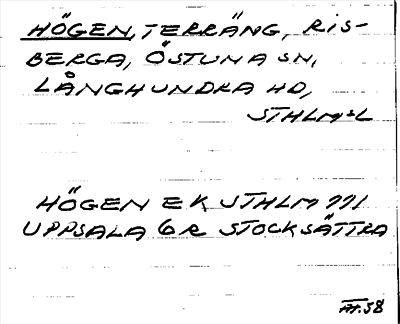 HÖGEN, TERRÄNG, RIS-
BERGA, ÖSTUNA SN,
LÅNGHUNDRA HD,
STHLMSL
HÖGEN EK STHLM 111
UPPSALA 6R STOCKSÄTTRA
58